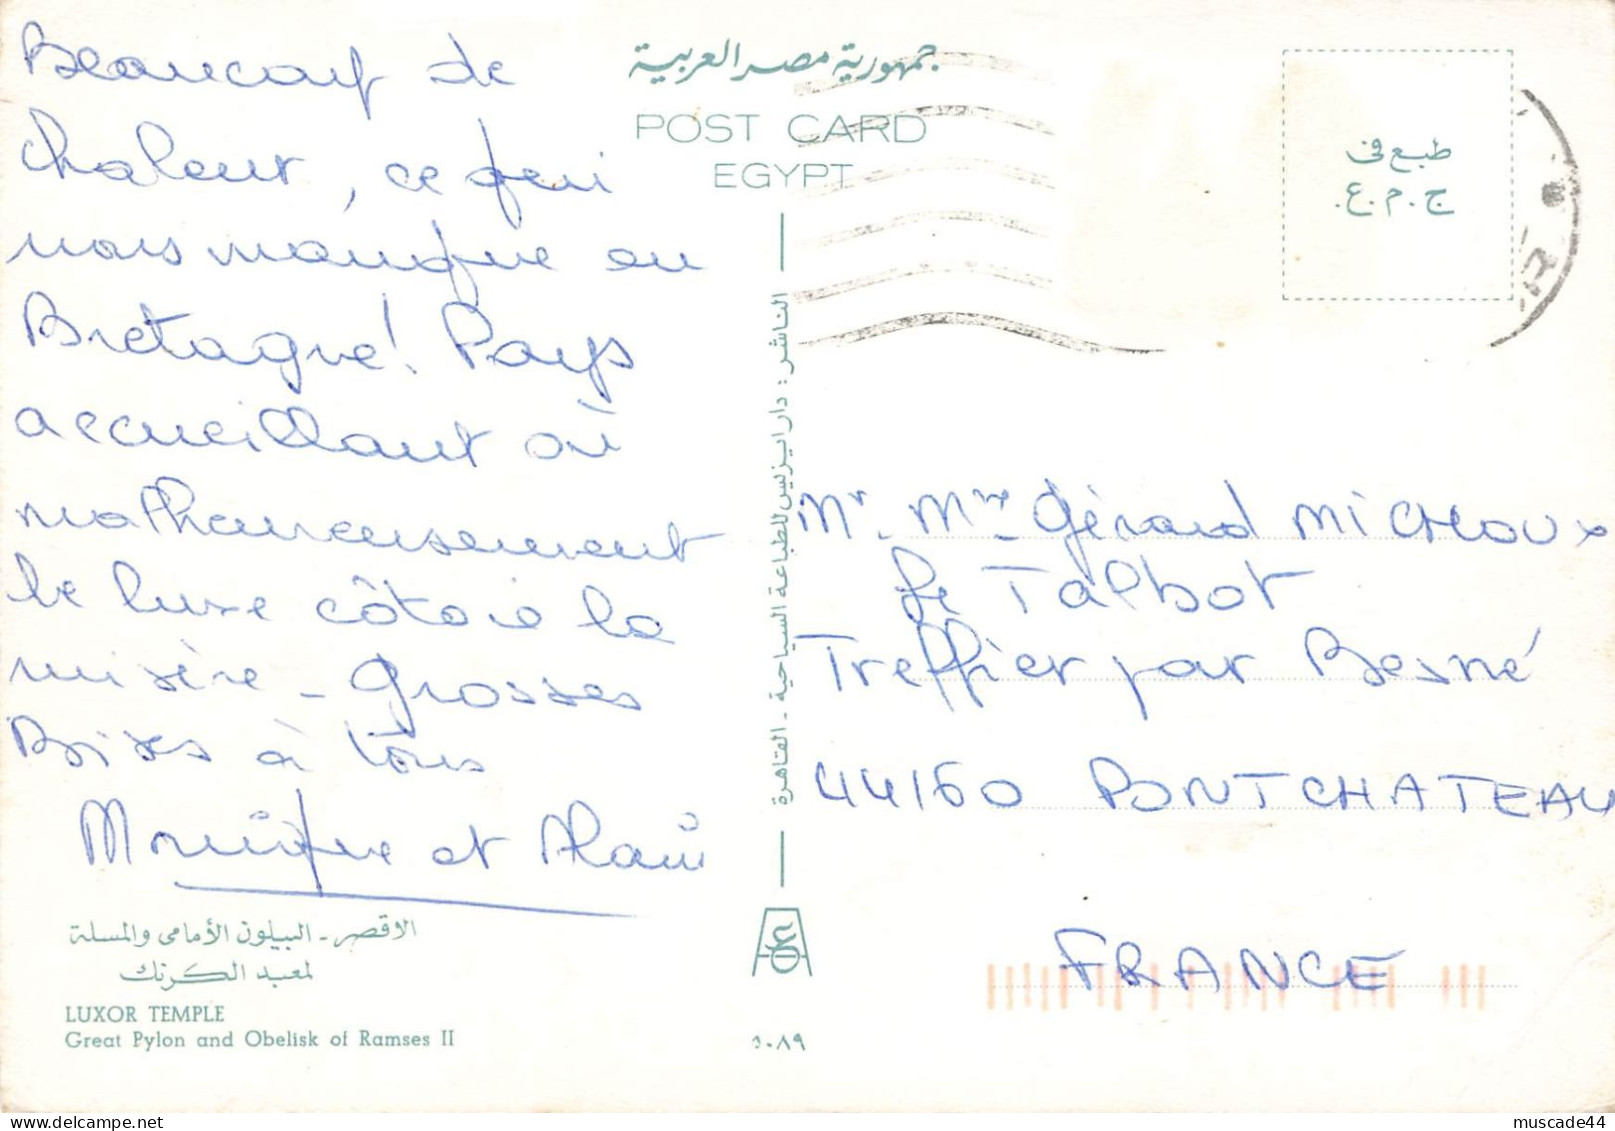 Beaucoup de
chaleur, ce qui
nous manque en
Bretagne! Pays
accueillant où
malheureusement
le luxe côtoie la
misère - Grosses
Bises à tous
Monique et Alain
الاقصر - البيلون الأمامى والمسلة
لمعبد الكرنك
LUXOR TEMPLE
Great Pylon and Obelisk of Ramses II
جمهورية مصر العربية
POST CARD
EGYPT
طبع فى
ج.م.ع.
الناشر : دار ايزيس للطباعة السياحية - القاهرة
Mr. Mme Gérard MICHOUX
Le Talbot
Treffier par Besné
44160 PONTCHATEAU
FRANCE
٥٠٨٩
muscade44